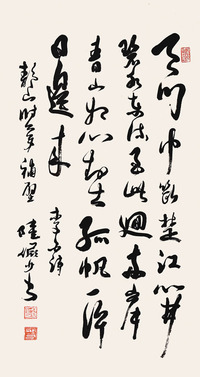 天門中斷楚江開
碧水東流至此迴兩岸
青山相對出孤帆一片
日邊來
李白詩
補壁 陸儼少書